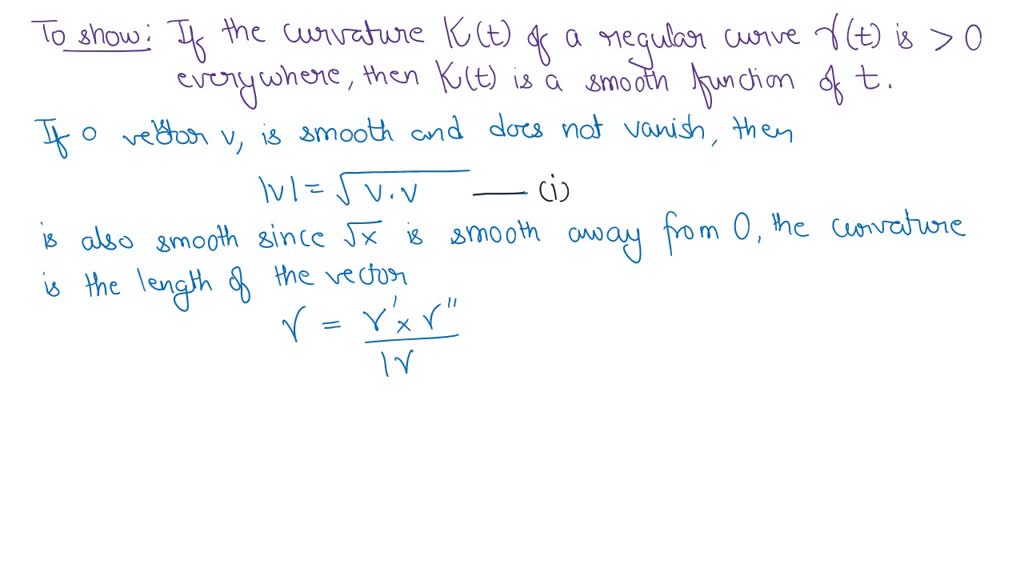 To show: If the curvature K(t) of a regular curve γ(t) is > 0
everywhere, then K(t) is a smooth function of t.
If a vector v, is smooth and does not vanish, then
|v| = √v.v —— (i)
is also smooth since √x is smooth away from 0, the curvature
is the length of the vector
γ = γ' × γ''
|γ